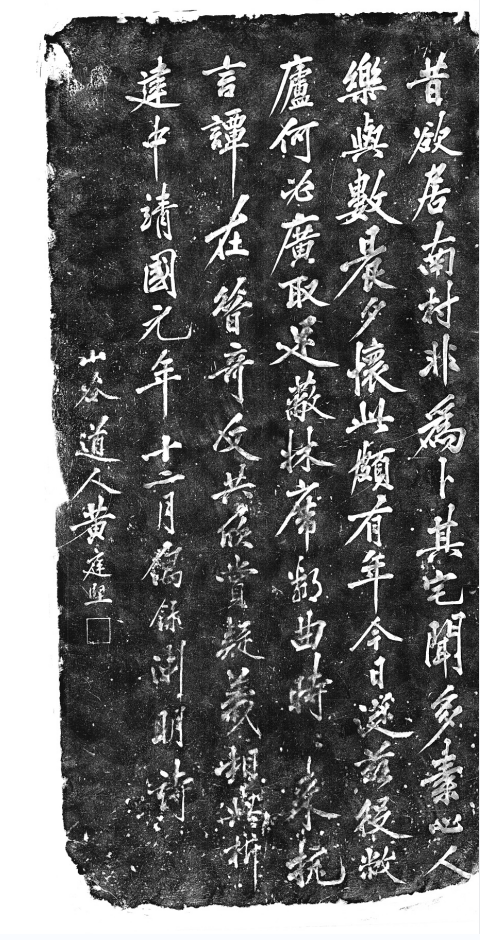 昔欲居南村非為卜其宅聞多素心人
樂與數晨夕懷此頗有年今日從茲役敝
廬何必廣取足蔽牀席鄰曲時時來抗
言譚在昔奇文共欣賞疑義相與析
建中靖國元年十二月偶錄淵明詩
山谷道人黃庭堅